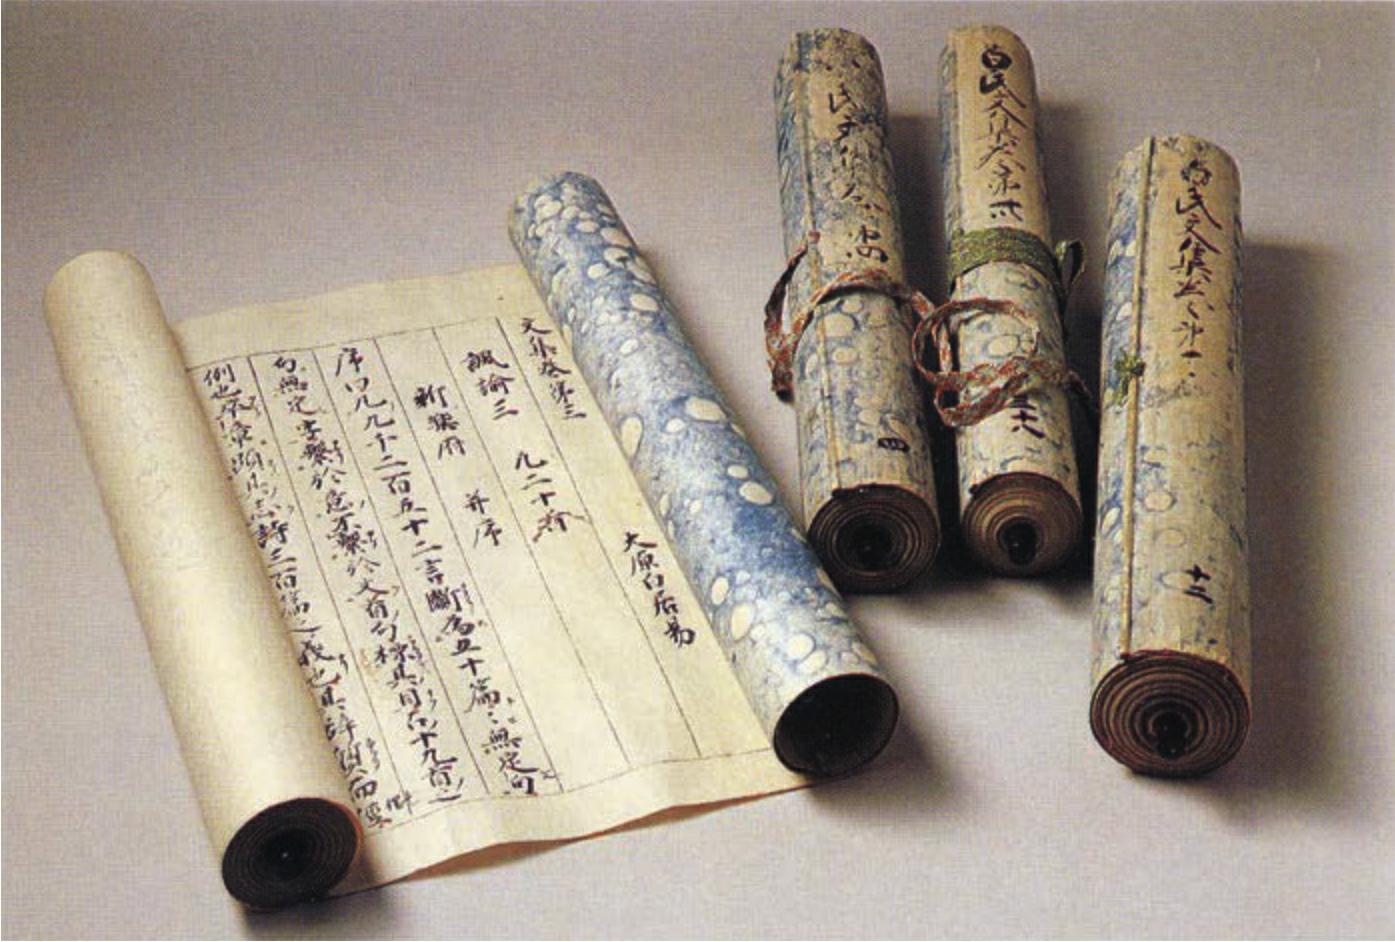 文集巻第三 大原白居易
諷諭三 凡二十首
新樂府 并序
序曰凡九千二百五十二言斷為五十篇〻無定句
句無定字繫於意不繫於文首句標其目古十九首之
例也卒章顯其志詩三百篇之義也其辭質而徑
氏文集巻
白氏文集巻第
白氏文集巻第
十三